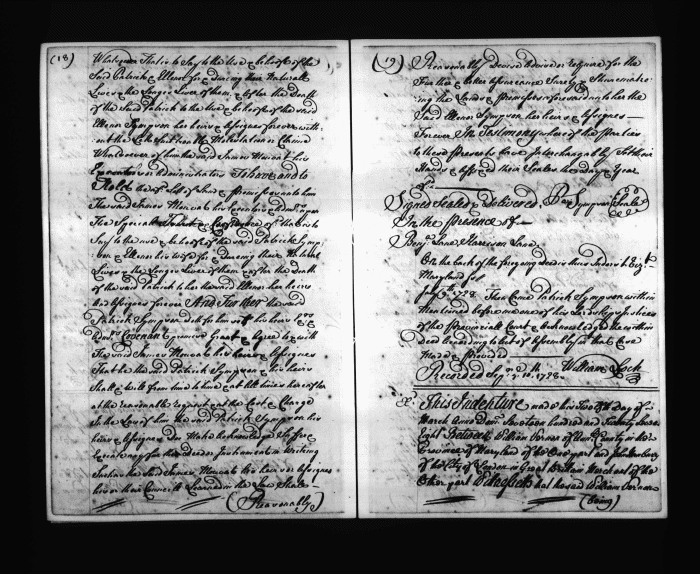 (18)
Whatsoever That is to Say to the Use & behoofe of the
Said Patrick & Ellenor for & during their Naturall
Lives & the Longer Liver of them & after the Death
of the Said Patrick to the Use & behoofe of the said
Ellenor Sympson her heirs & Assignes forever with
out the
Whatsoever of him the said James Mouat his
Executors or Administrators To have and to
Hold the Lot of Land & premises unto him
The said James Mouat his Executors & Adminrs upon
The Special Trust & Confidence of that is to
Say to the use & behoofe of the said Patrick Symp
son & Ellenor his wife for & during their Natural
Lives & the Longer Liver of them & after the Death
of the said Patrick to her the said Ellenor her heirs
And Assignes forever And Further the said
Patrick Sympson doth for himself his heirs Exrs
Admrs Covenant promise Grant & Agree to & with
The said James Mouat his heirs & Assignes
That he the said Patrick Sympson & his heirs
Shall & will from time to time & at all times hereafter
at the reasonable request at the Cost & Charge
In the Law of him the said Patrick Sympson his
heirs & Assignes Do Make Acknowledge & Suffer
& Execute any further Deed or Instrument in Writing
Such as he said James Mouat his heirs or Assignes
his or their Councill Learned in the Law Shall
(Reasonably)
(19)
Reasonably Devise Advise or Require for the
Further & better Assurance Surety & Sure making
the Lands & premises aforesaid unto her the
Said Ellenor Sympson her heirs & Assignes
Forever In Testimony whereof the parties
to these presents have Interchangeably Set their
Hands & affixed their Seales the day & Year
Signed Sealed & Delivered Pat Sympson (Seale)
In the presence of
Benja Lane, Harrison Lane.
On the back of the foregoing deed is thus Indorst Vizt
Maryland
July 5th 1728. Then Came Patrick Sympson within
Mentioned before me one of his Lordships Justices
of the Provinciall Court & Acknowledged the within
Deed According to Act of Assembly in that Case
Made & provided
William Lock
Recorded Sep. 10. 1728.
This Indenture made this Twelfth Day of
March Anno Dom Seventeen hundred and Twenty Seven
Eight Between William Vernor of Ann County in the
Province of Maryland of the One part and John
of the City of London in Great Brittain Merchant of the
Other part Witnesseth that he said William Vernor
(being)